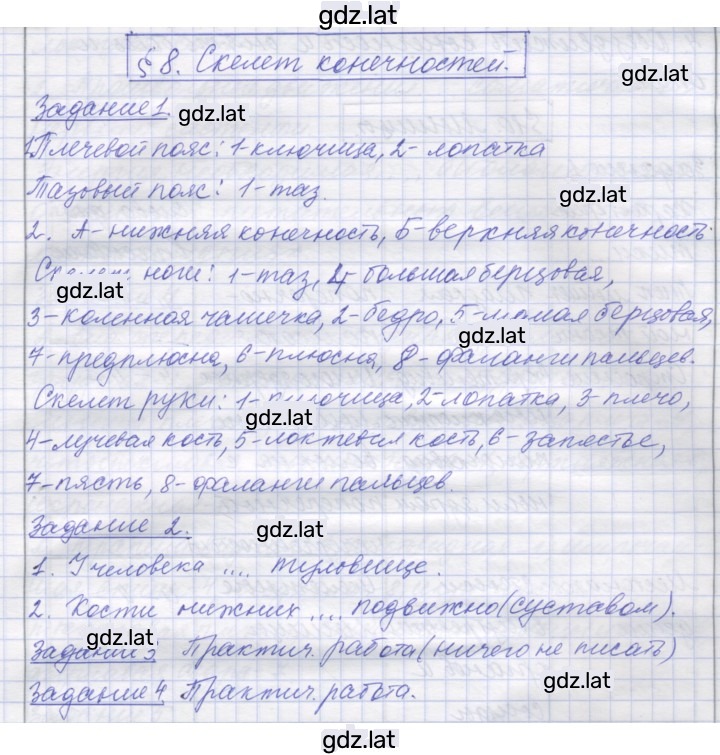 gdz.lat
§ 8. Скелет конечностей.
gdz.lat
Задание 1. gdz.lat
1. Плечевой пояс: 1-ключица, 2- лопатка
Тазовый пояс: 1-таз. gdz.lat
2. А-нижняя конечность, Б-верхняя конечность.
ноги: 1-таз, 4- большая берцовая,
gdz.lat
3-коленная чашечка, 2-бедро, 5-малая берцовая,
gdz.lat
7-предплюсна, 6-плюсна, 8-фаланги пальцев.
Скелет руки: 1-ключица, 2-лопатка, 3-плечо,
gdz.lat
4-лучевая кость, 5-локтевая кость, 6- запястье,
7-пясть, 8-фаланги пальцев.
Задание 2. gdz.lat
1. У человека .... туловище.
2. Кости нижних .... подвижно (суставом).
gdz.lat
Задание 3 Практич. работа (ничего не писать)
gdz.lat
Задание 4 Практич. работа.
gdz.lat